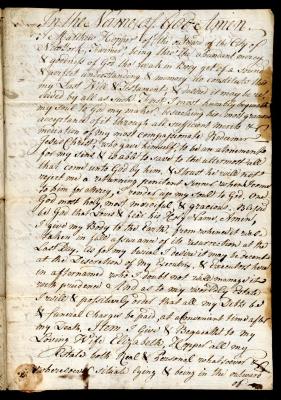 In the Name of God Amen
I Matthew Hopper of the outward of the City of
New York, Farmer being thro' the abundant mercy
& goodness of God tho' weak in Body yet of a Sound
& perfect understanding & memory do constitute this
my Last Will & Testament, & desire it may be received
by all as such. First I most humbly bequeath
my soul to God my maker, beseeching his most gracious
acceptance of it through all sufficient merits &
mediation of my most compassionate Redeemer
Jesus Christ, who gave himself to be an attonement
for my sins & is able to save to the uttermost all
that come unto God by him, & I trust he will not
reject me a returning penitent sinner when I come
to him for mercy, I render up my soul to God,
God most holy, most merciful & gracious, Blessed
be God that Lives & his Holy Name. Amen
I give my Body to the Earth from whence it was
taken in full assurance of its resurrection at the
Last Day. As for my burial I desire it may be decent
at the Discretion of my Executors here
in afternamed who I doubt not will manage it
with prudence. And as to my worldly Estate
I will & positively order that all my Debts be
& funeral Charges be paid, at a convenient time after
my Death, Item I Give & Bequeath to my
Loving Wife Elizabeth Hopper all my
Estate both Real & Personal whatsoever &
wheresoever situate lying & being in the outward
of